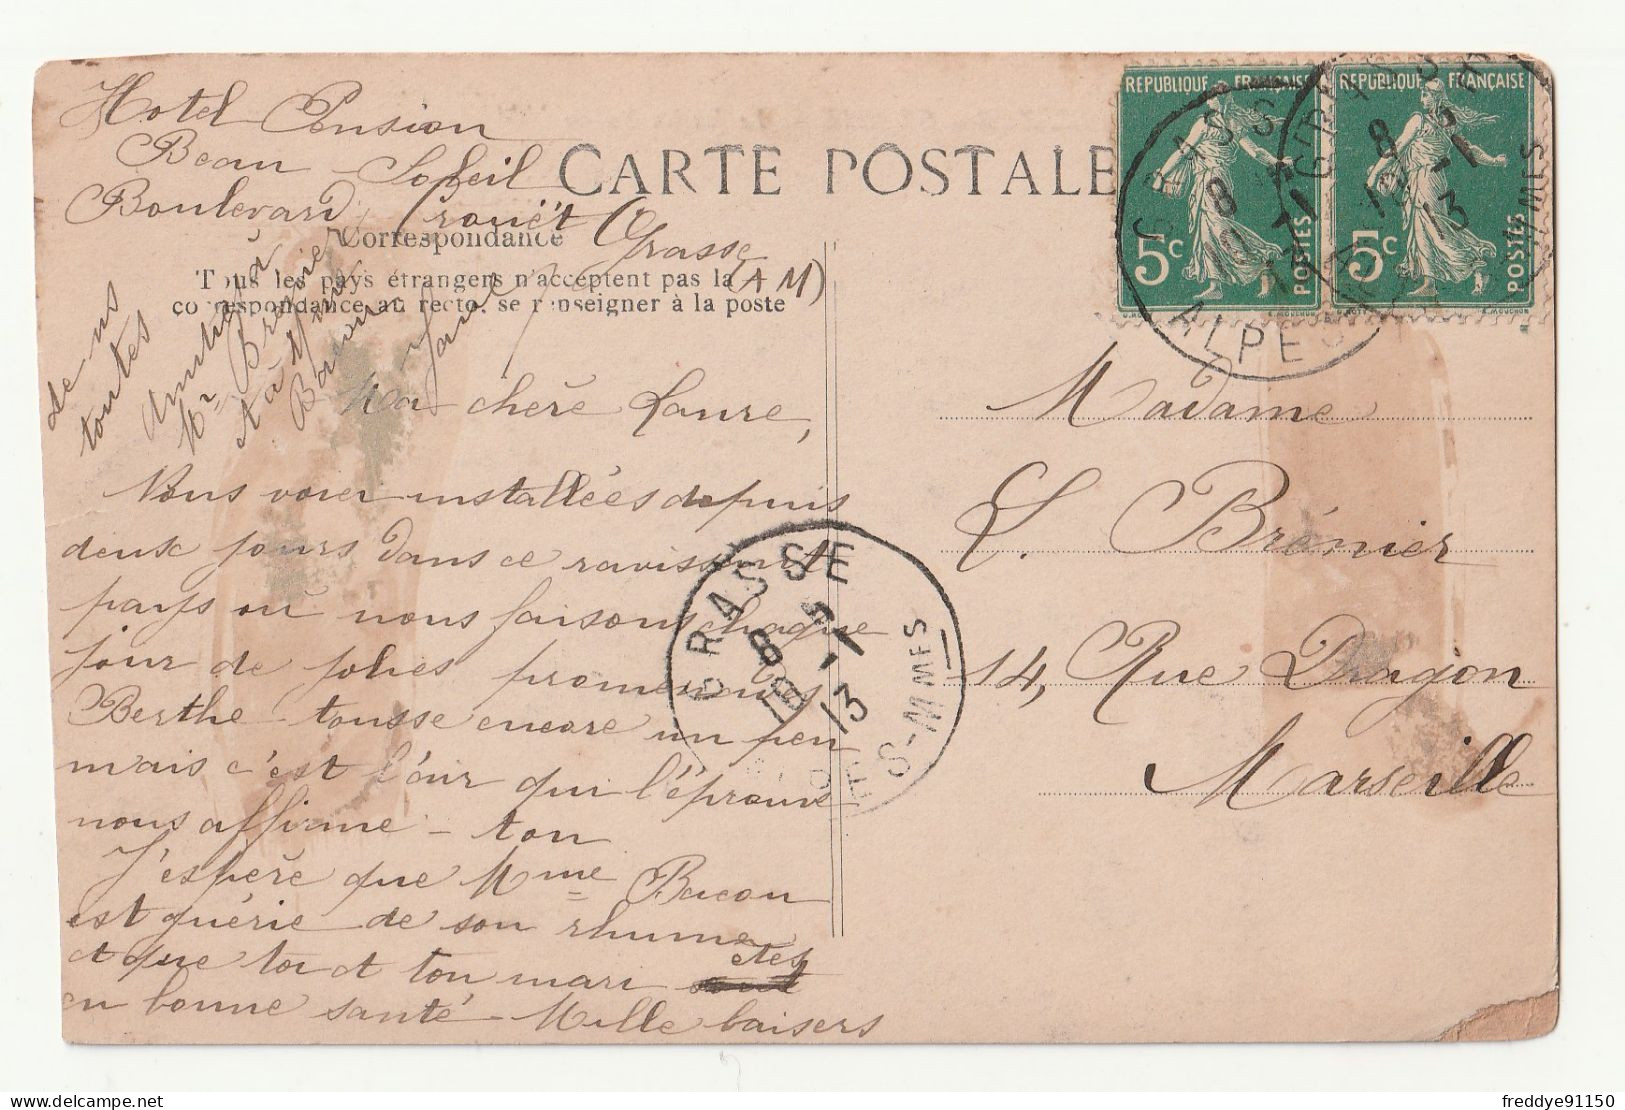 Hotel Pension
Beau Soleil
Boulevard Crouët Grasse
(AM)
CARTE POSTALE
Correspondance
Tous les pays étrangers n'acceptent pas la
correspondance au recto, se renseigner à la poste
REPUBLIQUE FRANÇAISE
5c POSTES
REPUBLIQUE FRANÇAISE
5c POSTES
GRASSE
8-1
13
ALPES-MMES
de ns
toutes
Amitiés à
Mr Brénier
et à Mme
Bacon
Jane
Ma chère Laure,
Nous voici installées depuis
deux jours dans ce ravissant
pays où nous faisons chaque
jour de jolies promenades
Berthe tousse encore un peu
mais c'est l'air qui l'éprouve
nous affirme-t-on
J'espère que Mme Bacon
est guérie de son rhume
et que toi et ton mari êtes
en bonne santé - Mille baisers
GRASSE
8-1
13
MMES
Madame
L. Brénier
14, Rue Dragon
Marseille
freddye91150